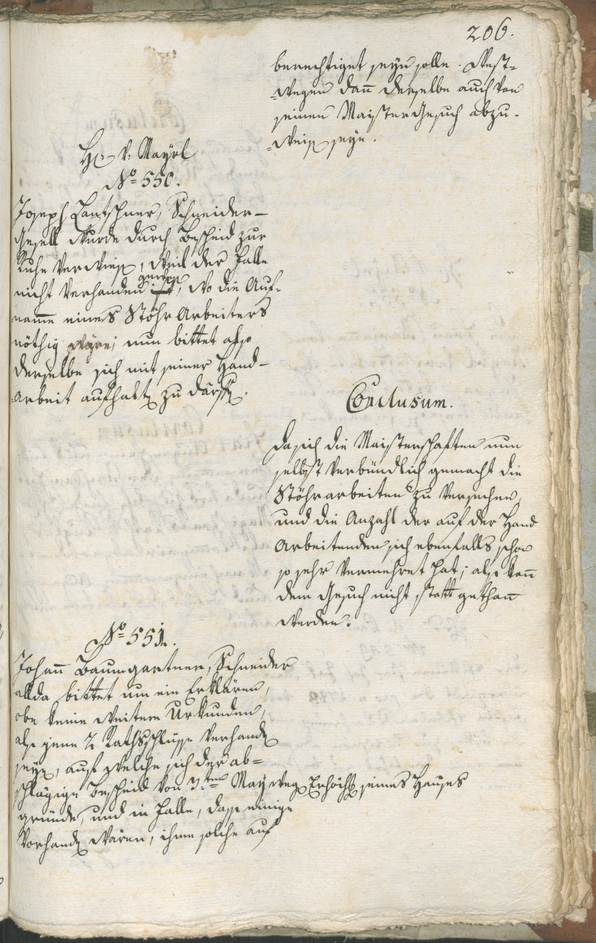 206.
berechtiget seyn solle. West-
wegen dann derselbe auch von
seinem Maistergesuch abzu-
weisen seye.
H: v: Mayrl
No. 550.
Joseph Lantschner, Schneider-
gesell wurde durch Bescheid zur
Ruhe verwiesen, weil der Falle
nicht vorhanden gewesen, wo die Auf-
name eines Stöhr Arbeiters
nöthig wäre; nun bittet also
derselbe sich mit seiner Hand-
arbeit aufhalten zu därffen.
Conclusum.
Da sich die Maisterschaften nun
selbst verbündlich gemacht die
Stöhrarbeiten zu versechen,
und die Anzahl der auf der Hand
Arbeitenden sich ebenfalls schon
so sehr vermehret hat; also kann
dem Gesuch nicht statt gethan
werden.
No. 551.
Johann Baumgartner, Schneider
allda bittet um ein Erklären,
obe keine weitere Urkunden,
als jene 2 Rathschlüsse vorhanden
seyen, auf welche sich der ab-
schlägige Bescheid von 3ten May wegen Erhöchung seines Hauses
gründe, und im Falle, dass einige
vorhanden wären, ihme solche auf